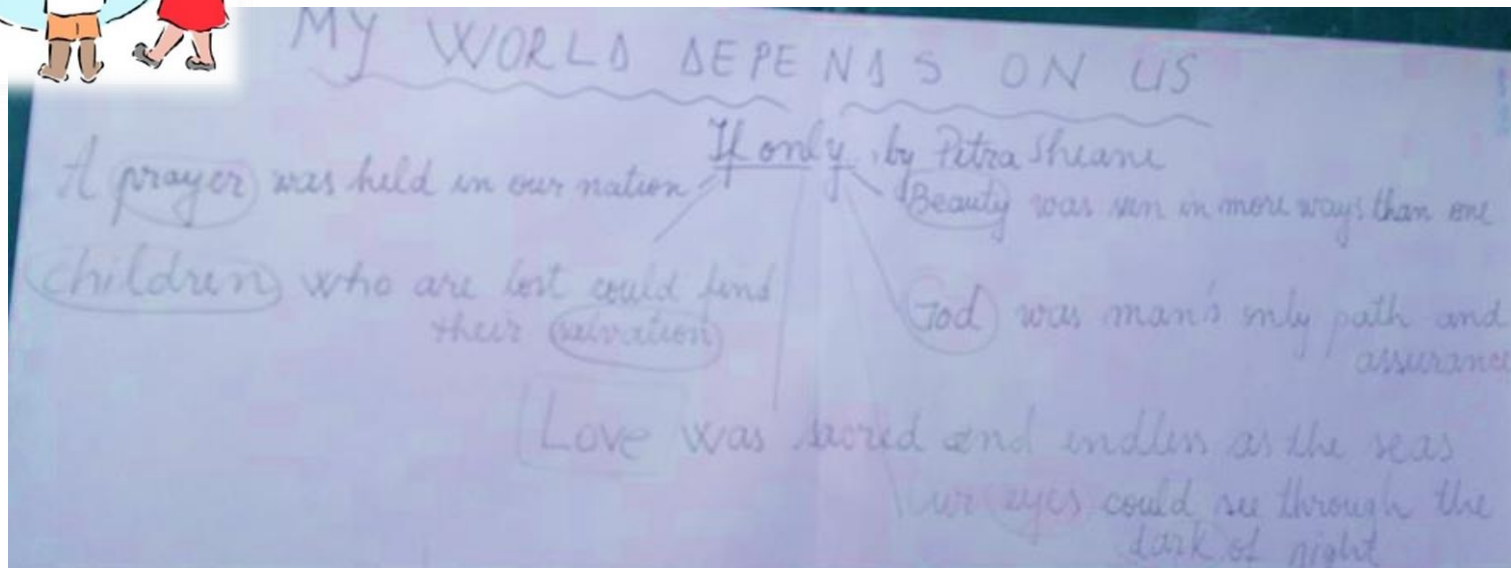 MY WORLD DEPENDS ON US
If only, by Petra Sheane
A prayer was held in our nation
Beauty was seen in more ways than one
children who are lost could find
their salvation
God was man's only path and
assurance
Love was sacred and endless as the seas
Our eyes could see through the
dark of night